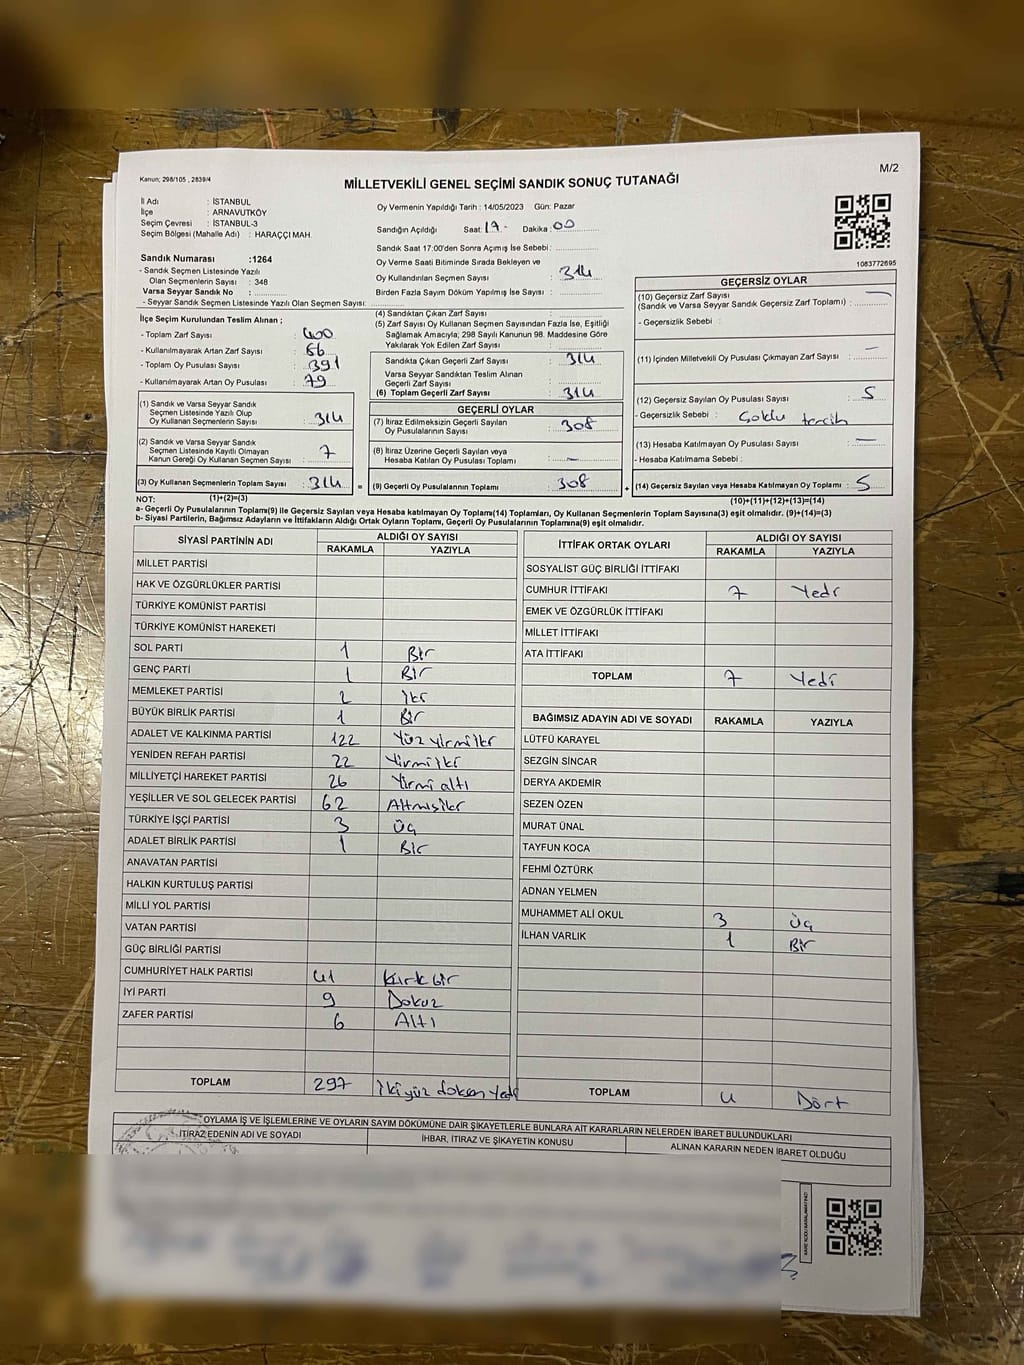 M/2
Kanun; 298/105 , 2839/4
MİLLETVEKİLİ GENEL SEÇİMİ SANDIK SONUÇ TUTANAĞI
İl Adı : İSTANBUL
İlçe : ARNAVUTKÖY
Seçim Çevresi : İSTANBUL-3
Seçim Bölgesi (Mahalle Adı) : HARAÇÇI MAH.
Sandık Numarası :1264
- Sandık Seçmen Listesinde Yazılı
Olan Seçmenlerin Sayısı : 348
Varsa Seyyar Sandık No :
- Seyyar Sandık Seçmen Listesinde Yazılı Olan Seçmen Sayısı:
Oy Vermenin Yapıldığı Tarih : 14/05/2023 Gün: Pazar
Sandığın Açıldığı Saat: 17- Dakika: 00
Sandık Saat 17:00'den Sonra Açımış İse Sebebi :
Oy Verme Saati Bitiminde Sırada Bekleyen ve
Oy Kullandırılan Seçmen Sayısı : 314
Birden Fazla Sayım Döküm Yapılmış İse Sayısı :
1083772695
İlçe Seçim Kurulundan Teslim Alınan ;
- Toplam Zarf Sayısı : 400
- Kullanılmayarak Artan Zarf Sayısı : 86
- Toplam Oy Pusulası Sayısı : 391
- Kullanılmayarak Artan Oy Pusulası : 79
(1) Sandık ve Varsa Seyyar Sandık
Seçmen Listesinde Yazılı Olup
Oy Kullanan Seçmenlerin Sayısı : 314
(2) Sandık ve Varsa Seyyar Sandık
Seçmen Listesinde Kayıtlı Olmayan
Kanun Gereği Oy Kullanan Seçmen Sayısı : 7
(3) Oy Kullanan Seçmenlerin Toplam Sayısı : 314 =
(1)+(2)=(3)
(4) Sandıktan Çıkan Zarf Sayısı :
(5) Zarf Sayısı Oy Kullanan Seçmen Sayısından Fazla İse, Eşitliği
Sağlamak Amacıyla; 298 Sayılı Kanunun 98. Maddesine Göre
Yakılarak Yok Edilen Zarf Sayısı :
Sandıkta Çıkan Geçerli Zarf Sayısı : 314
Varsa Seyyar Sandıktan Teslim Alınan
Geçerli Zarf Sayısı :
(6) Toplam Geçerli Zarf Sayısı : 314
GEÇERLİ OYLAR
(7) İtiraz Edilmeksizin Geçerli Sayılan
Oy Pusulalarının Sayısı : 308
(8) İtiraz Üzerine Geçerli Sayılan veya
Hesaba Katılan Oy Pusulası Toplamı : -
(9) Geçerli Oy Pusulalarının Toplamı : 308 +
GEÇERSİZ OYLAR
(10) Geçersiz Zarf Sayısı
(Sandık ve Varsa Seyyar Sandık Geçersiz Zarf Toplamı) : -
- Geçersizlik Sebebi :
(11) İçinden Milletvekili Oy Pusulası Çıkmayan Zarf Sayısı : -
(12) Geçersiz Sayılan Oy Pusulası Sayısı : 5
- Geçersizlik Sebebi : Çoklu tercih
(13) Hesaba Katılmayan Oy Pusulası Sayısı : -
- Hesaba Katılmama Sebebi :
(14) Geçersiz Sayılan veya Hesaba Katılmayan Oy Toplamı : 5
(10)+(11)+(12)+(13)=(14)
NOT:
a- Geçerli Oy Pusulalarının Toplam(9) ile Geçersiz Sayılan veya Hesaba katılmayan Oy Toplam(14) Toplamları, Oy Kullanan Seçmenlerin Toplam Sayısına(3) eşit olmalıdır. (9)+(14)=(3)
b- Siyasi Partilerin, Bağımsız Adayların ve İttifakların Aldığı Ortak Oyların Toplamı, Geçerli Oy Pusulalarının Toplamına(9) eşit olmalıdır.
SİYASİ PARTİNİN ADI
ALDIĞI OY SAYISI
RAKAMLA YAZIYLA
MİLLET PARTİSİ
HAK VE ÖZGÜRLÜKLER PARTİSİ
TÜRKİYE KOMÜNİST PARTİSİ
TÜRKİYE KOMÜNİST HAREKETİ
SOL PARTİ 1 Bir
GENÇ PARTİ 1 Bir
MEMLEKET PARTİSİ 2 İki
BÜYÜK BİRLİK PARTİSİ 1 Bir
ADALET VE KALKINMA PARTİSİ 122 Yüz yirmi iki
YENİDEN REFAH PARTİSİ 22 Yirmi iki
MİLLİYETÇİ HAREKET PARTİSİ 26 Yirmi altı
YEŞİLLER VE SOL GELECEK PARTİSİ 62 Altmış iki
TÜRKİYE İŞÇİ PARTİSİ 3 Üç
ADALET BİRLİK PARTİSİ 1 Bir
ANAVATAN PARTİSİ
HALKIN KURTULUŞ PARTİSİ
MİLLİ YOL PARTİSİ
VATAN PARTİSİ
GÜÇ BİRLİĞİ PARTİSİ
CUMHURİYET HALK PARTİSİ 41 Kırk bir
İYİ PARTİ 9 Dokuz
ZAFER PARTİSİ 6 Altı
TOPLAM 297 İki yüz doksan yedi
İTTİFAK ORTAK OYLARI
ALDIĞI OY SAYISI
RAKAMLA YAZIYLA
SOSYALİST GÜÇ BİRLİĞİ İTTİFAKI
CUMHUR İTTİFAKI 7 Yedi
EMEK VE ÖZGÜRLÜK İTTİFAKI
MİLLET İTTİFAKI
ATA İTTİFAKI
TOPLAM 7 Yedi
BAĞIMSIZ ADAYIN ADI VE SOYADI RAKAMLA YAZIYLA
LÜTFÜ KARAYEL
SEZGİN SİNCAR
DERYA AKDEMİR
SEZEN ÖZEN
MURAT ÜNAL
TAYFUN KOCA
FEHMİ ÖZTÜRK
ADNAN YELMEN
MUHAMMET ALİ OKUL 3 Üç
İLHAN VARLIK 1 Bir
TOPLAM 4 Dört
OYLAMA İŞ VE İŞLEMLERİNE VE OYLARIN SAYIM DÖKÜMÜNE DAİR ŞİKAYETLERLE BUNLARA AİT KARARLARIN NELERDEN İBARET BULUNDUKLARI
İTİRAZ EDENİN ADI VE SOYADI
İHBAR, İTİRAZ VE ŞİKAYETİN KONUSU
ALINAN KARARIN NEDEN İBARET OLDUĞU